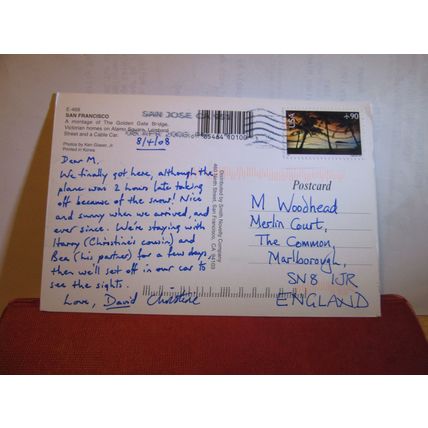 E-468
SAN FRANCISCO
A montage of The Golden Gate Bridge,
Victorian homes on Alamo Square, Lombard
Street and a Cable Car.
Photos by Ken Glaser, Jr.
Printed in Korea
SAN JOSE CA
8/4/08
Dear M.
We finally got here, although the
plane was 2 hours late taking
off because of the snow! Nice
and sunny when we arrived, and
ever since. We're staying with
Harry (Christine's cousin) and
Bea (his partner) for a few days,
then we'll set off in our car to
see the sights.
Love, David Christine
Distributed by Smith Novelty Company
460 Ninth Street, San Francisco, CA 94103
USA
90
Postcard
M Woodhead
Merlin Court,
The Common,
Marlborough,
SN8 1JR
ENGLAND